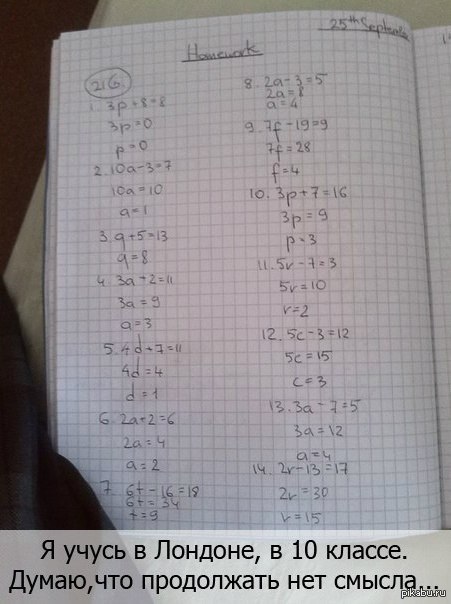 25th September
Homework
21G.
1. 3p+8=8
3p=0
p=0
2. 10a-3=7
10a=10
a=1
3. q+5=13
q=8
4. 3a+2=11
3a=9
a=3
5. 4d+7=11
4d=4
d=1
6. 2a+2=6
2a=4
a=2
7. 6t-16=18
6t=34
t=9
8. 2a-3=5
2a=8
a=4
9. 7f-19=9
7f=28
f=4
10. 3p+7=16
3p=9
p=3
11. 5r-7=3
5r=10
r=2
12. 5c-3=12
5c=15
c=3
13. 3a-7=5
3a=12
a=4
14. 2r-13=17
2r=30
r=15
Я учусь в Лондоне, в 10 классе.
Думаю,что продолжать нет смысла...
pikabu.ru